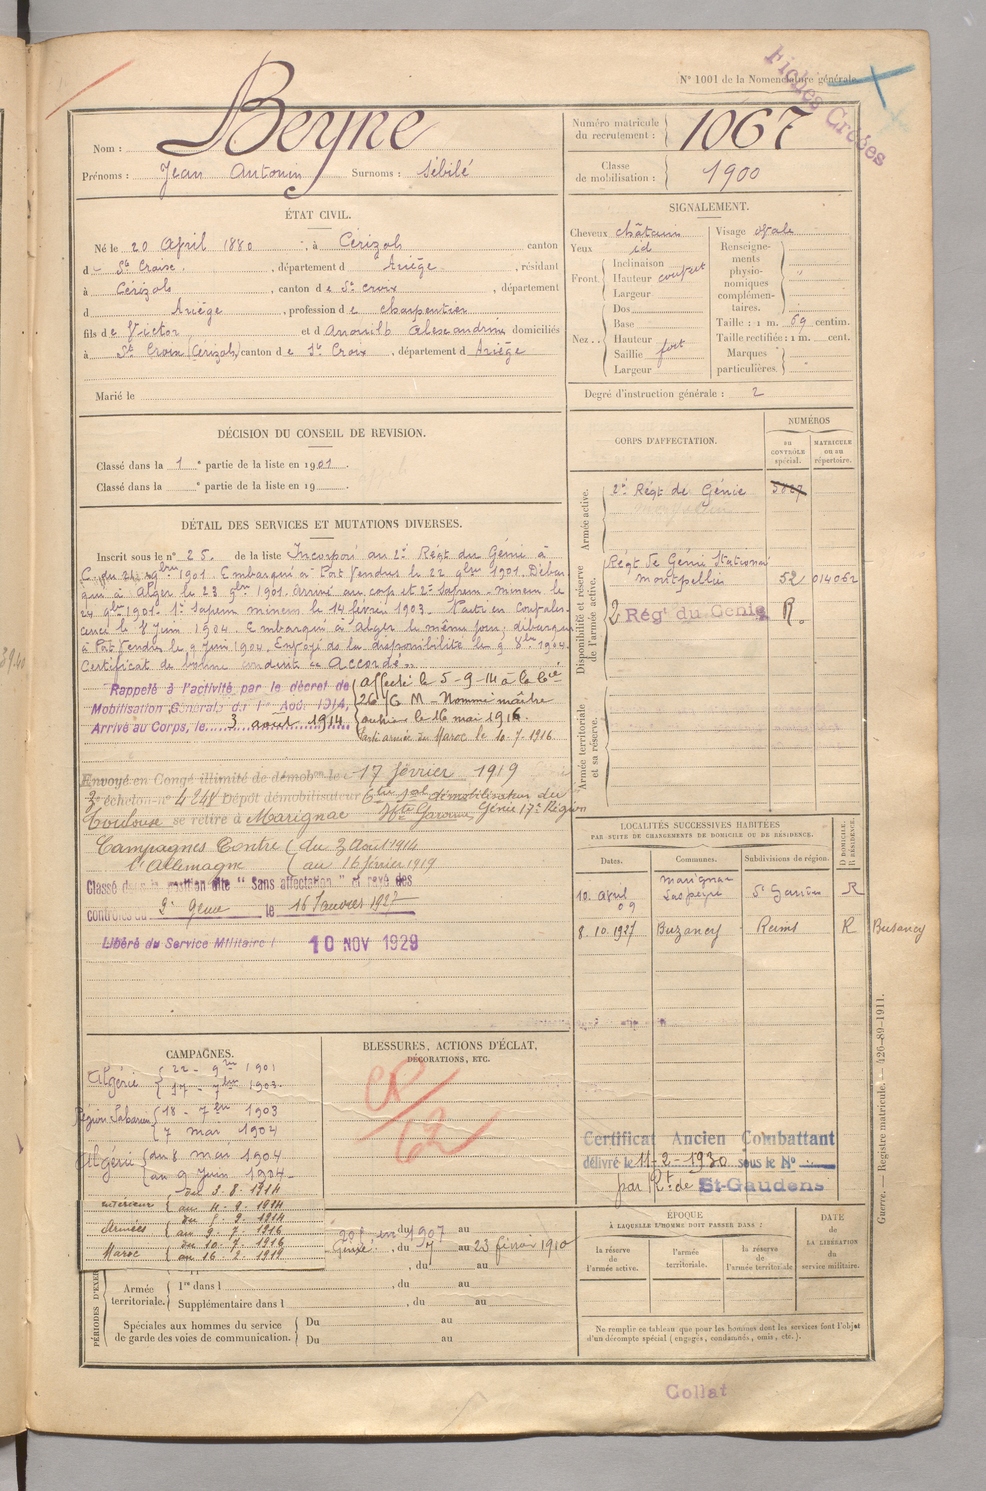 N° 1001 de la Nomenclature générale.
Fiches Créées
Nom : Beyne
Prénoms : Jean Antonin Surnoms : Sébilé
Numéro matricule du recrutement : 1067
Classe de mobilisation : 1900
ÉTAT CIVIL.
Né le 20 April 1880, à Cérizols canton
d - Ste Croix, département d Ariège, résidant
à Cérizols, canton de Ste Croix, département
d Ariège, profession de charpentier
fils de Victor et d Alexandrine domiciliés
à Ste Croix (Cérizols) canton de Ste Croix, département d Ariège
Marié le
SIGNALEMENT.
Cheveux châtain
Yeux id
Front. Inclinaison
Hauteur
Largeur
Nez.. Dos
Base
Hauteur
Saillie fort
Largeur
Visage ovale
Renseignements physionomiques complémentaires. "
Taille : 1 m. 69 centim.
Taille rectifiée : 1 m. cent.
Marques particulières.
Degré d'instruction générale : 2
DÉCISION DU CONSEIL DE REVISION.
Classé dans la 1e partie de la liste en 1901.
Classé dans la e partie de la liste en 19 .
CORPS D'AFFECTATION.
NUMÉROS
au CONTRÔLE spécial.
MATRICULE ou au répertoire.
Armée active.
2e Régt de Génie
Disponibilité et réserve de l'armée active.
Régt de Génie Stationné Montpellier 52 014062
2 Régt du Génie R.
Armée territoriale et sa réserve.
DÉTAIL DES SERVICES ET MUTATIONS DIVERSES.
Inscrit sous le n° 25. de la liste Incorporé au 2e Régt du Génie à
C. du 21 9bre 1901. Embarqué à Port Vendres le 22 9bre 1901. Débar
qué à Alger le 23 9bre 1901. Arrivé au corps et 2e Sapeur-mineur le
24 9bre 1901. 1e Sapeur mineur le 14 février 1903. Parti en Convales
cence le 8 Juin 1904. Embarqué à Alger le même jour, débarqué
à Port Vendres le 9 Juin 1904. Envoyé ds la disponibilité le 9 8bre 1904.
Certificat de bonne conduite "Accordé".
Rappelé à l'activité par le décret de
Mobilisation Générale du 1er Août 1914,
Arrivé au Corps, le 3 août 1914
affecté le 5-9-14 à la Cie
26/6 M - Nommé maître
ouvrier le 16 mai 1916.
Parti armée du Maroc le 10.7.1916
Envoyé en Congé illimité de démobon le 17 février 1919
3e échelon n° 4248 Dépôt démobilisateur
Toulouse se retire à Marignac Hte Garonne Génie 17e Région
Campagnes Contre (du 3 Aout 1914
l'Allemagne (au 16 février 1919
Classé dans la position dite "Sans affectation" et rayé des
contrôles du 2e Génie le 16 Janvier 1927
Libéré du Service Militaire l 10 NOV 1929
LOCALITÉS SUCCESSIVES HABITÉES
PAR SUITE DE CHANGEMENTS DE DOMICILE OU DE RÉSIDENCE.
Dates. Communes. Subdivisions de région. D DOMICILE. R RÉSIDENCE.
10 april 09 Marignac Laspeyre St Gaudens R
8.10.1927 Buzancy Reims R Busancy
CAMPAGNES.
Algérie (22 - 9bre 1901
(17 - 7bre 1903
Région Saharienne (18 - 7bre 1903
(7 mai 1904
Algérie (du 8 mai 1904
(au 9 Juin 1904
Intérieur (du 3.8.1914
(au 4.9.1914
Armées (du 5.9.1914
(au 9.7.1916
Maroc (du 10.7.1916
(au 16.2.1919
BLESSURES, ACTIONS D'ÉCLAT,
DÉCORATIONS, ETC.
CR/62
Certificat Ancien Combattant
délivré le 11-2-1930 sous le N°
par Rt de St-Gaudens
PÉRIODES D'EXER
du 1907 au
Génie, du 7 au 23 février 1910
, du au
Armée territoriale. 1re dans l , du au
Supplémentaire dans l , du au
Spéciales aux hommes du service de garde des voies de communication. Du au
Du au
ÉPOQUE
À LAQUELLE L'HOMME DOIT PASSER DANS :
la réserve de l'armée active.
l'armée territoriale.
la réserve de l'armée territoriale
DATE de LA LIBÉRATION du service militaire.
Ne remplir ce tableau que pour les hommes dont les services font l'objet
d'un décompte spécial (engagés, condamnés, omis, etc.).
Guerre. — Registre matricule. — 426-89-1911.
Collat